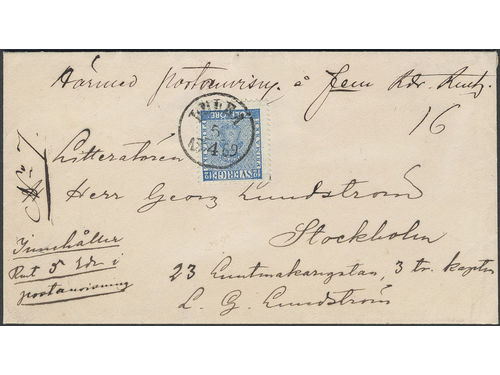 Härmed postanvisn. å fem Rdr. Rmt.
16
No 7.
Litteratören
Herr Georg Lundström
Stockholm
23 Luntmakaregatan, 3 tr.
L. G. Lundström
Innehåller
Rmt 5 Rdr i
postanvisning
5
4
SVERIGE
ÖRE
12
12